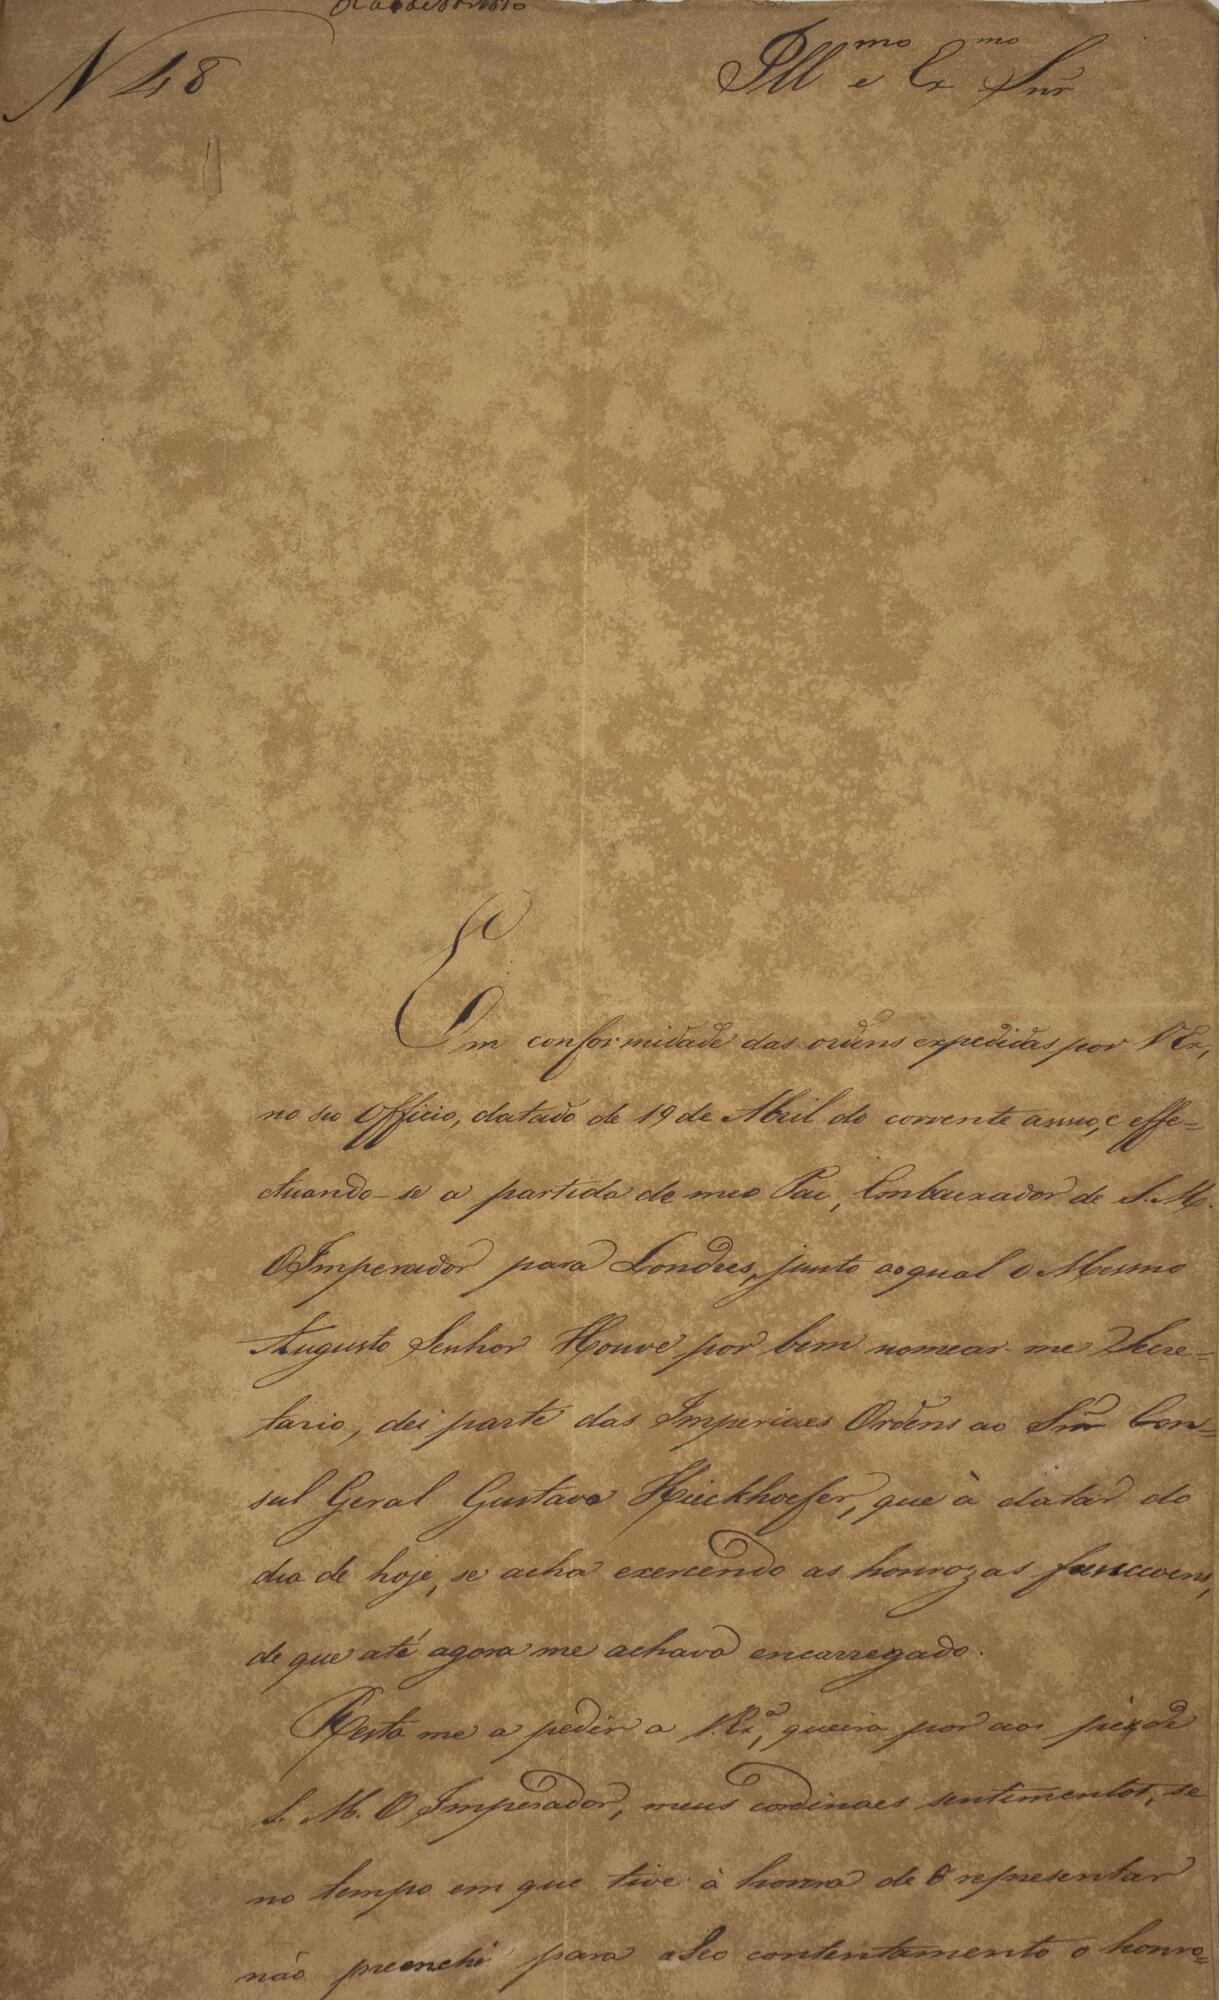 N 48
Ill.mo e Ex.mo Snr
Em conformidade das ordens expedidas por V Ex,
no seo Officio, datado de 19 de Abril do corrente anno, e effe=
ctuando-se a partida de meo Pai, Embaixador de S. M.
O Imperador para Londres, junto ao qual o Mesmo
Augusto Senhor Houve por bem nomear-me Secre=
tario, dei parte das Imperiaes Ordens ao Snr Con=
sul Geral Gustavo Kieckhoefer, que à datar do
dia de hoje, se acha exercendo as honrozas funccoens,
de que até agora me achava encarregado.
Resta me a pedir a V. Ex.ª, queira por aos pés de
S. M. O Imperador, meus cordiaes sentimentos, se
no tempo em que tive à honra de O representar
não preenchi para a Seo contentamento o honro=